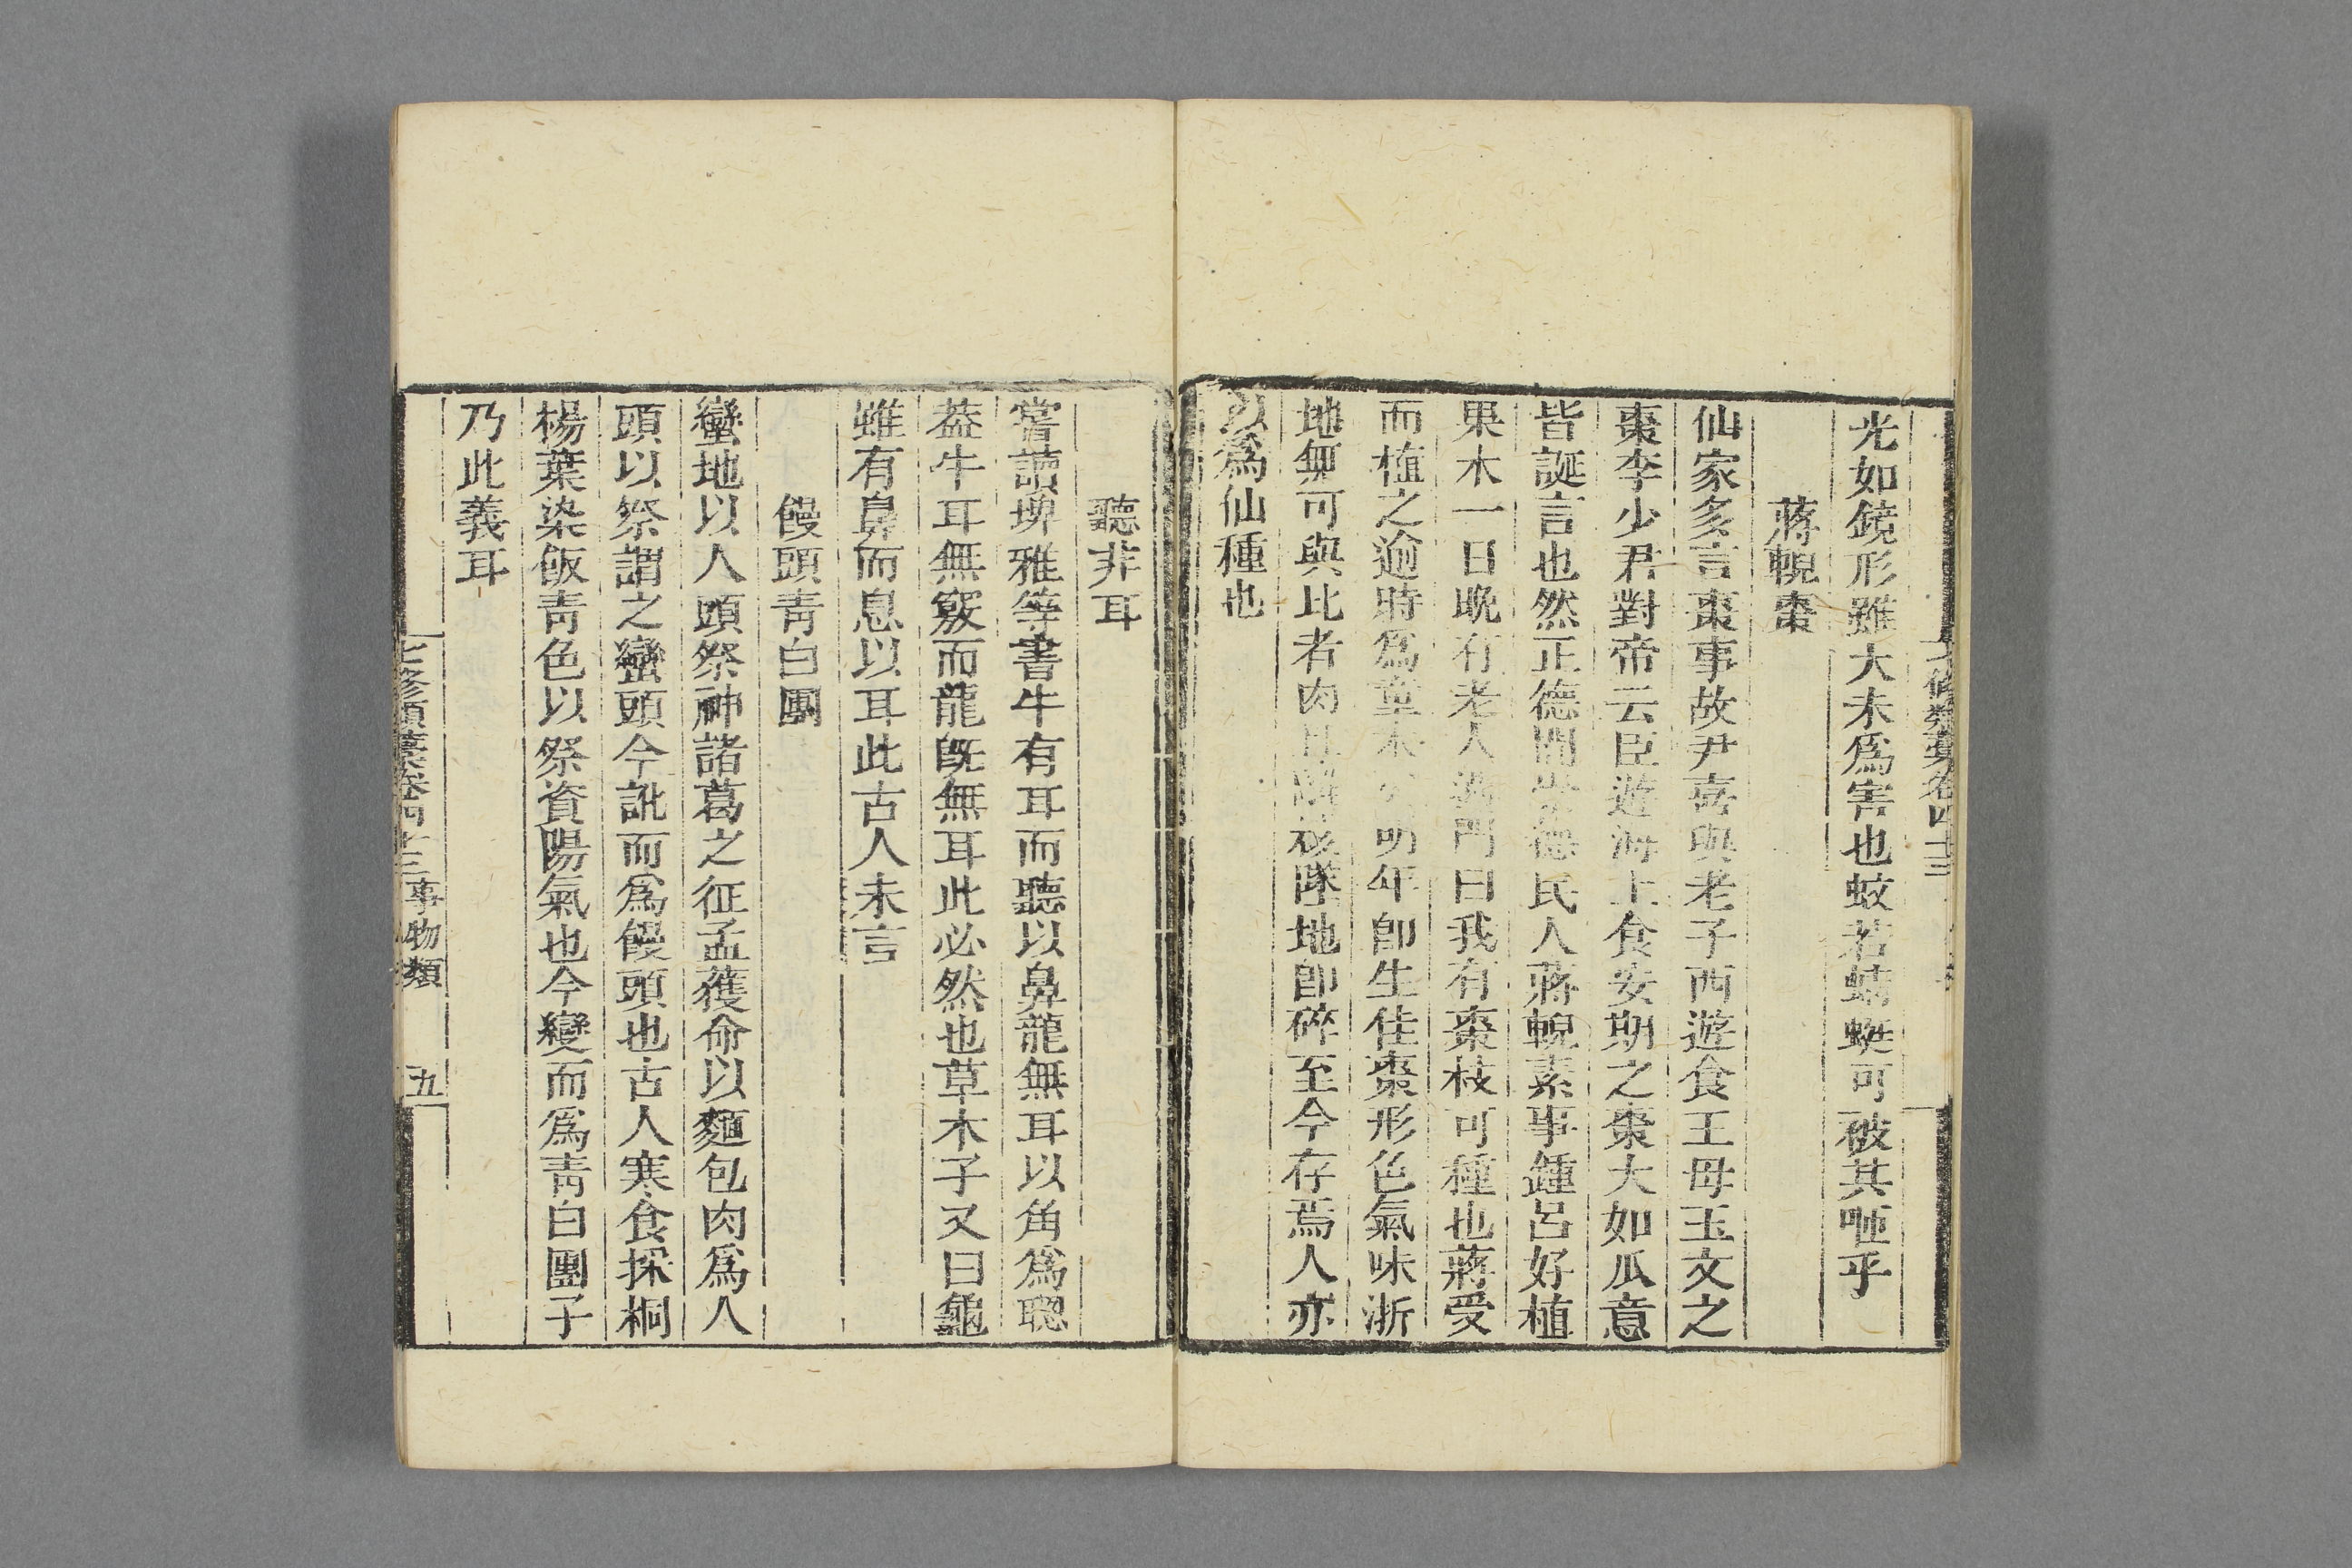 光如鏡形雖大未爲害也蚊若蜻蜓可被其咂乎
蔣輗棗
仙家多言棗事故尹喜與老子西遊食王母玉文之
棗李少君對帝云臣遊海上食安期之棗大如瓜意
皆誕言也然正德間常德民人蔣輗素事鍾呂好植
果木一日晚有老人過門曰我有棗枝可種也蔣受
而植之逾時爲童木明年卽生佳棗形色氣味浙
地無可與比者肉且核墜地卽碎至今存焉人亦
以爲仙種也
七修類藁卷四十三
聽非耳
嘗讀埤雅等書牛有耳而聽以鼻龍無耳以角爲聰
葢牛耳無竅而龍旣無耳此必然也草木子又曰龜
雖有鼻而息以耳此古人未言
饅頭青白團
蠻地以人頭祭神諸葛之征孟獲命以麵包肉爲人
頭以祭謂之蠻頭今訛而爲饅頭也古人寒食採桐
楊葉染飯青色以祭資陽氣也今變而爲青白團子
乃此義耳
七修類藁卷四十三 事物類 五